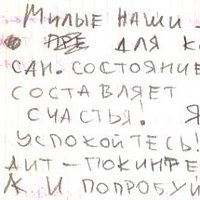 Милые наши -
для к
сдн. состояние
составляет
счастья. Я
успокойтесь!
дит - покинте
ж и попробуй